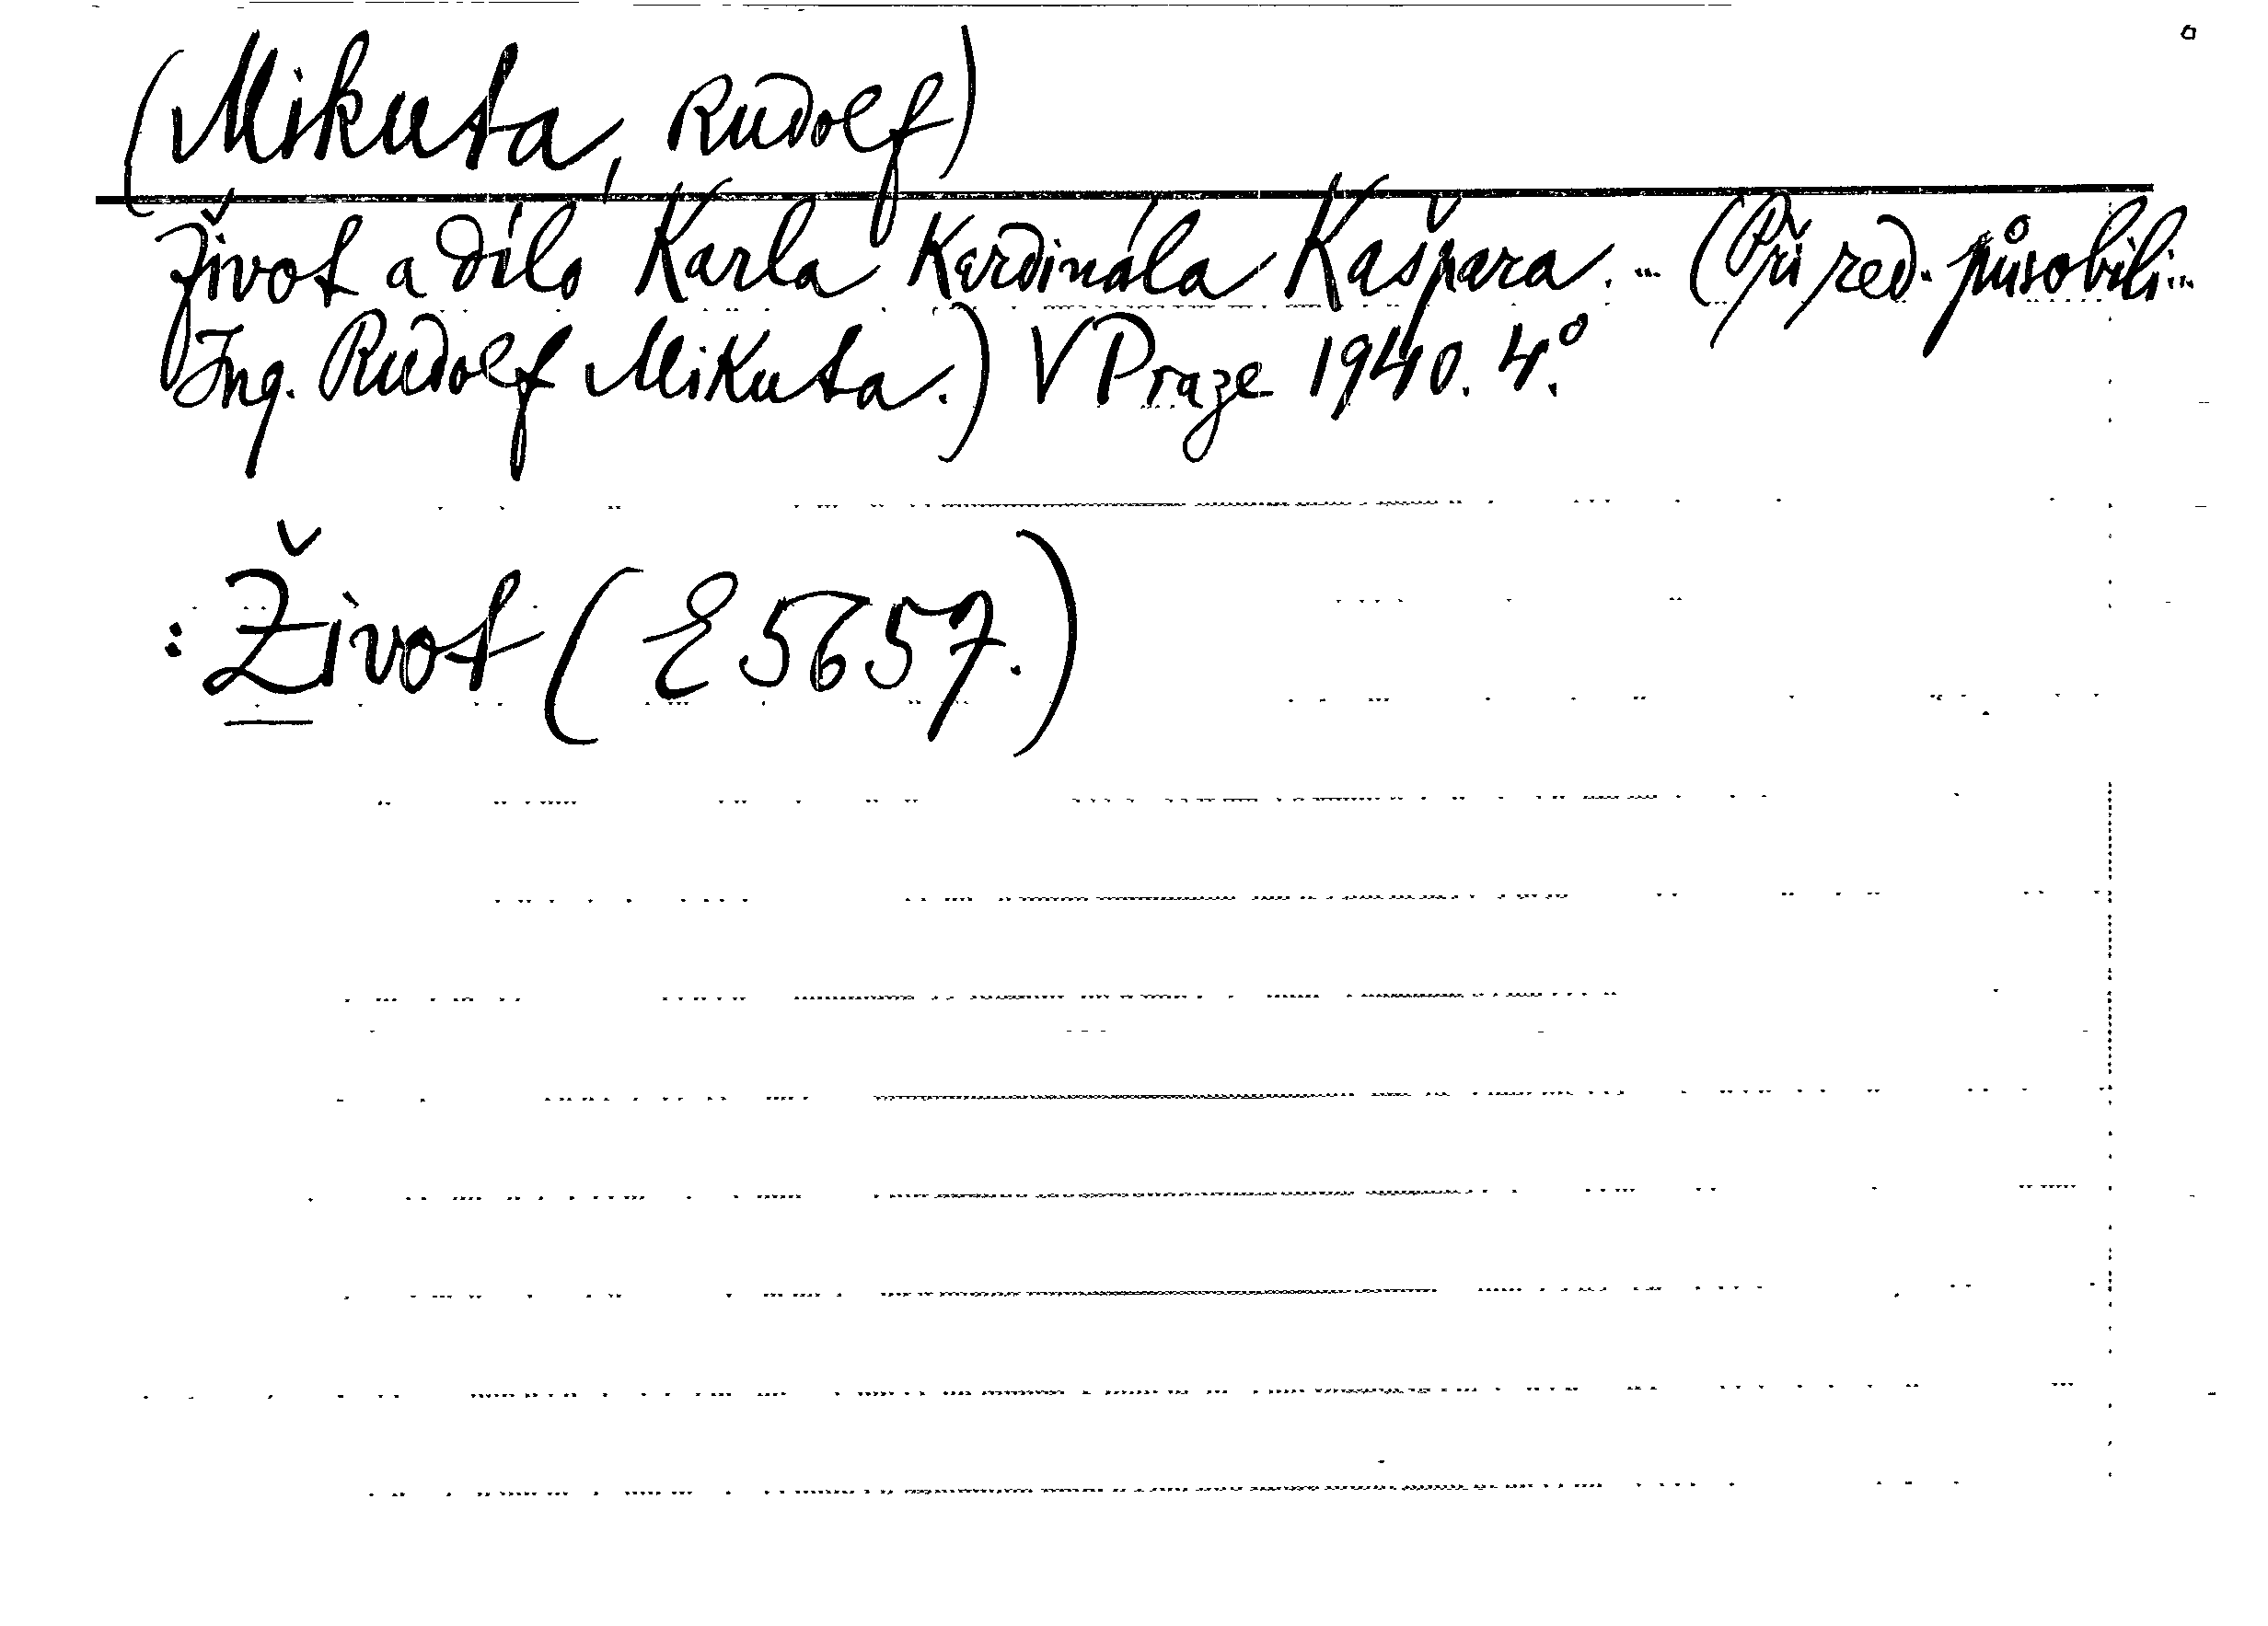 (Mikuta, Rudolf)
Život a dílo Karla Kardinála Kašpara. ... (Při red. působili ...
Ing. Rudolf Mikuta.) V Praze 1940. 4°.
: Život (E 5657.)